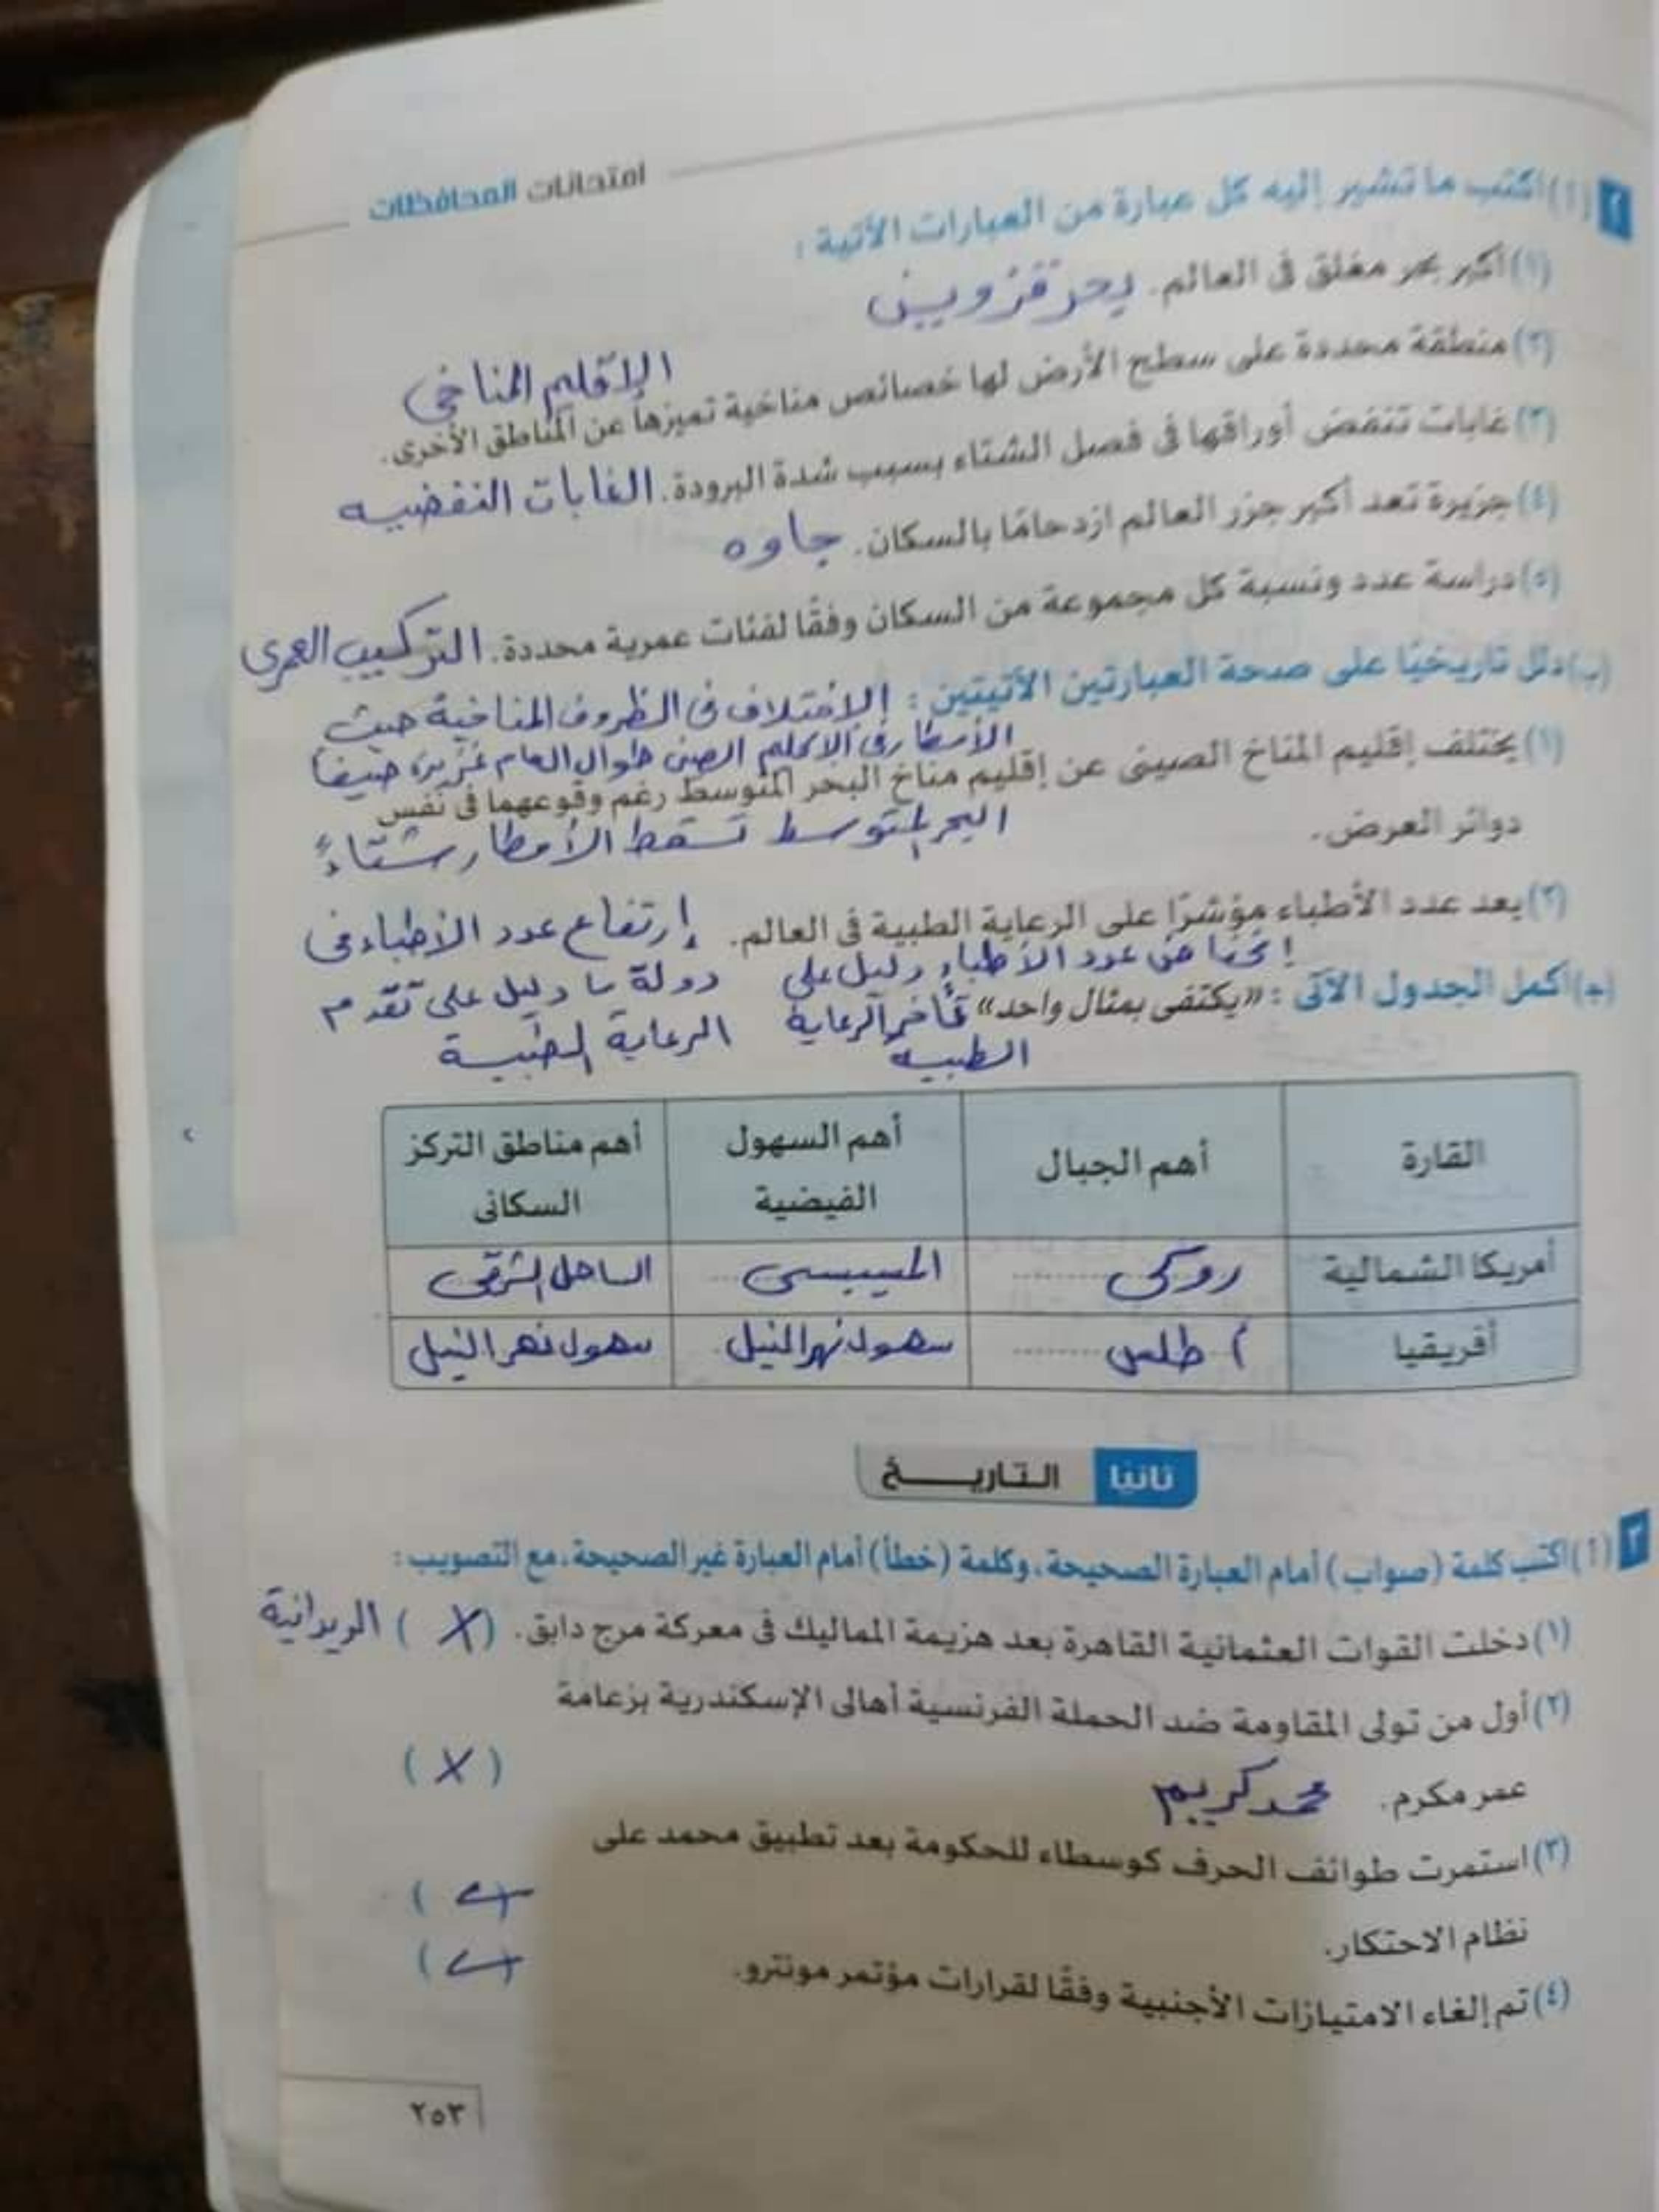 امتحانات المحافظات
٢ (أ) اكتب ما تشير إليه كل عبارة من العبارات الآتية :
(١) أكبر بحر مغلق فى العالم. بحر قزوين
(٢) منطقة محددة على سطح الأرض لها خصائص مناخية تميزها عن المناطق الأخرى.
الإقليم المناخى
(٣) غابات تنفض أوراقها فى فصل الشتاء بسبب شدة البرودة. الغابات النفضيه
(٤) جزيرة تعد أكبر جزر العالم ازدحامًا بالسكان. جاوه
(٥) دراسة عدد ونسبة كل مجموعة من السكان وفقًا لفئات عمرية محددة. التركيب العمرى
(ب) دلل تاريخيًا على صحة العبارتين الآتيتين : الإختلاف فى الظروف المناخية حيث
الأمطار فى الإقليم الصينى طوال العام غزيرة صيفاً
(١) يختلف إقليم المناخ الصينى عن إقليم مناخ البحر المتوسط رغم وقوعهما فى نفس
دوائر العرض.
البحر المتوسط تسقط الأمطار شتاءً
(٢) يعد عدد الأطباء مؤشرًا على الرعاية الطبية فى العالم. إرتفاع عدد الأطباء فى
دولة ما دليل على تقدم
الرعاية الطبية
إنخفاض عدد الأطباء دليل على
تأخر الرعاية
الطبيه
(ج) أكمل الجدول الآتى : «يكتفى بمثال واحد»
القارة أهم الجبال أهم السهول الفيضية أهم مناطق التركز السكانى
أمريكا الشمالية روكى المسيسبى الساحل الشرقى
أفريقيا أطلس سهول نهر النيل سهول نهر النيل
ثانيًا التاريـــخ
٣ (أ) اكتب كلمة (صواب) أمام العبارة الصحيحة، وكلمة (خطأ) أمام العبارة غير الصحيحة، مع التصويب :
(١) دخلت القوات العثمانية القاهرة بعد هزيمة المماليك فى معركة مرج دابق. (X) الريدانية
(٢) أول من تولى المقاومة ضد الحملة الفرنسية أهالى الإسكندرية بزعامة
عمر مكرم. محمد كريم (X)
(٣) استمرت طوائف الحرف كوسطاء للحكومة بعد تطبيق محمد على
نظام الاحتكار.
(٤) تم إلغاء الامتيازات الأجنبية وفقًا لقرارات مؤتمر مونترو.
٢٥٣